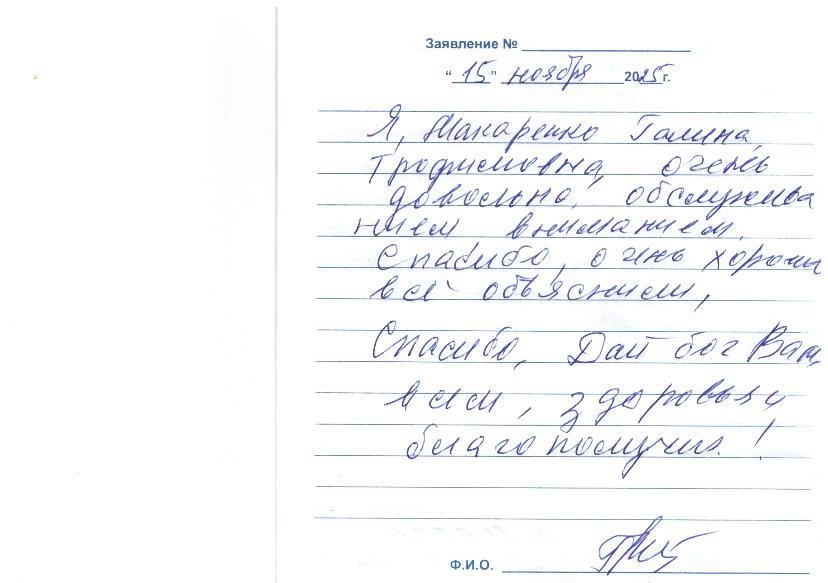 Заявление №
"15" ноября 2025г.
Я, Макаренко Галина
Трофимовна, очень
довольна, обслужива
нием вниманием.
Спасибо, очень хорошо
всё объяснили,
Спасибо, Дай бог Вам,
всем, здоровья,
благополучия!
Ф.И.О.